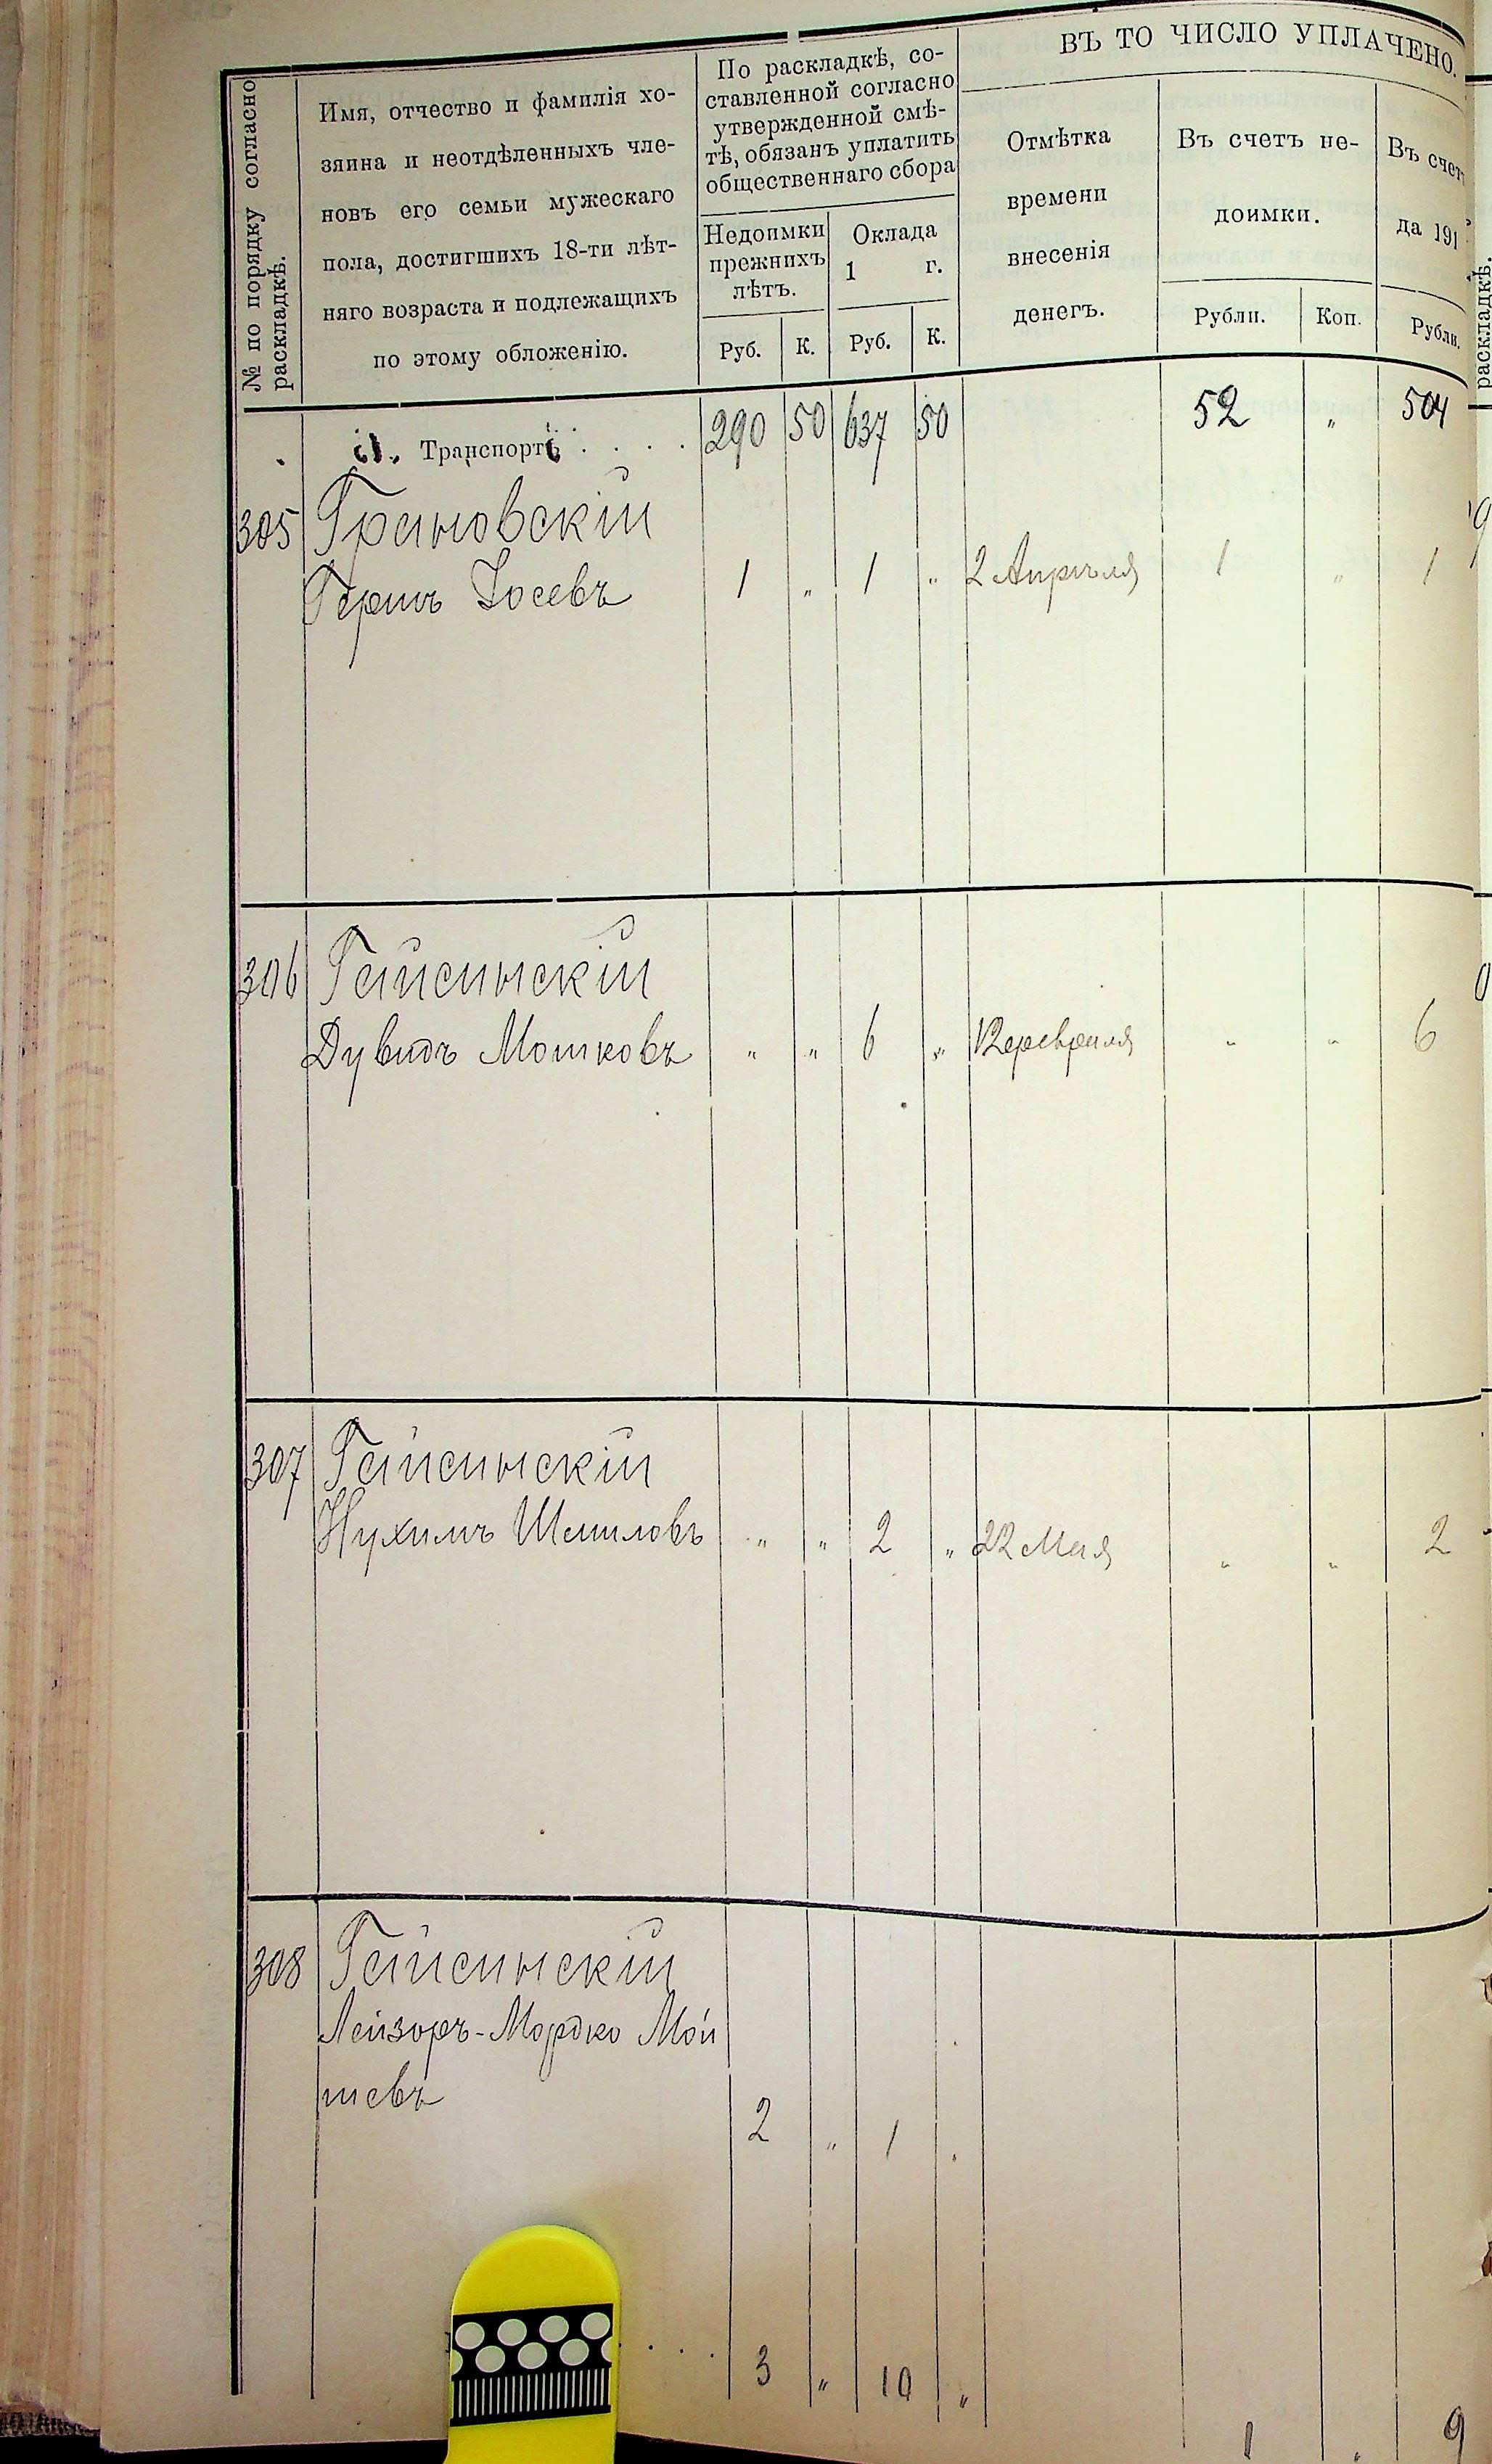 № по порядку согласно
раскладкѣ.
Имя, отчество и фамилія хо-
зяина и неотдѣленныхъ чле-
новъ его семьи мужескаго
пола, достигшихъ 18-ти лѣт-
няго возраста и подлежащихъ
по этому обложенію.
По раскладкѣ, со-
ставленной согласно
утвержденной смѣ-
тѣ, обязанъ уплатить
общественнаго сбора
Недоимки
прежнихъ
лѣтъ.
Оклада
1 г.
Руб. К. Руб. К.
ВЪ ТО ЧИСЛО УПЛАЧЕНО.
Отмѣтка
времени
внесенія
денегъ.
Въ счетъ не-
доимки.
Рубли. Коп.
Въ счет
да 191
Рубли.
раскладкѣ.
Транспортъ 290 50 637 50 52 " 504
305 Грановскій
Гершъ Іосевъ 1 " 1 " 2 Апрѣля 1 " 1
306 Гайсинскій
Дувидъ Мошковъ " " 6 " 12 февраля " " 6
307 Гайсинскій
Нухимъ Шмиловъ " " 2 " 22 Мая " " 2
308 Гайсинскій
Лейзоръ-Мордко Мой
шевъ
2 " 1 "
3 " 10 "
1 " 9